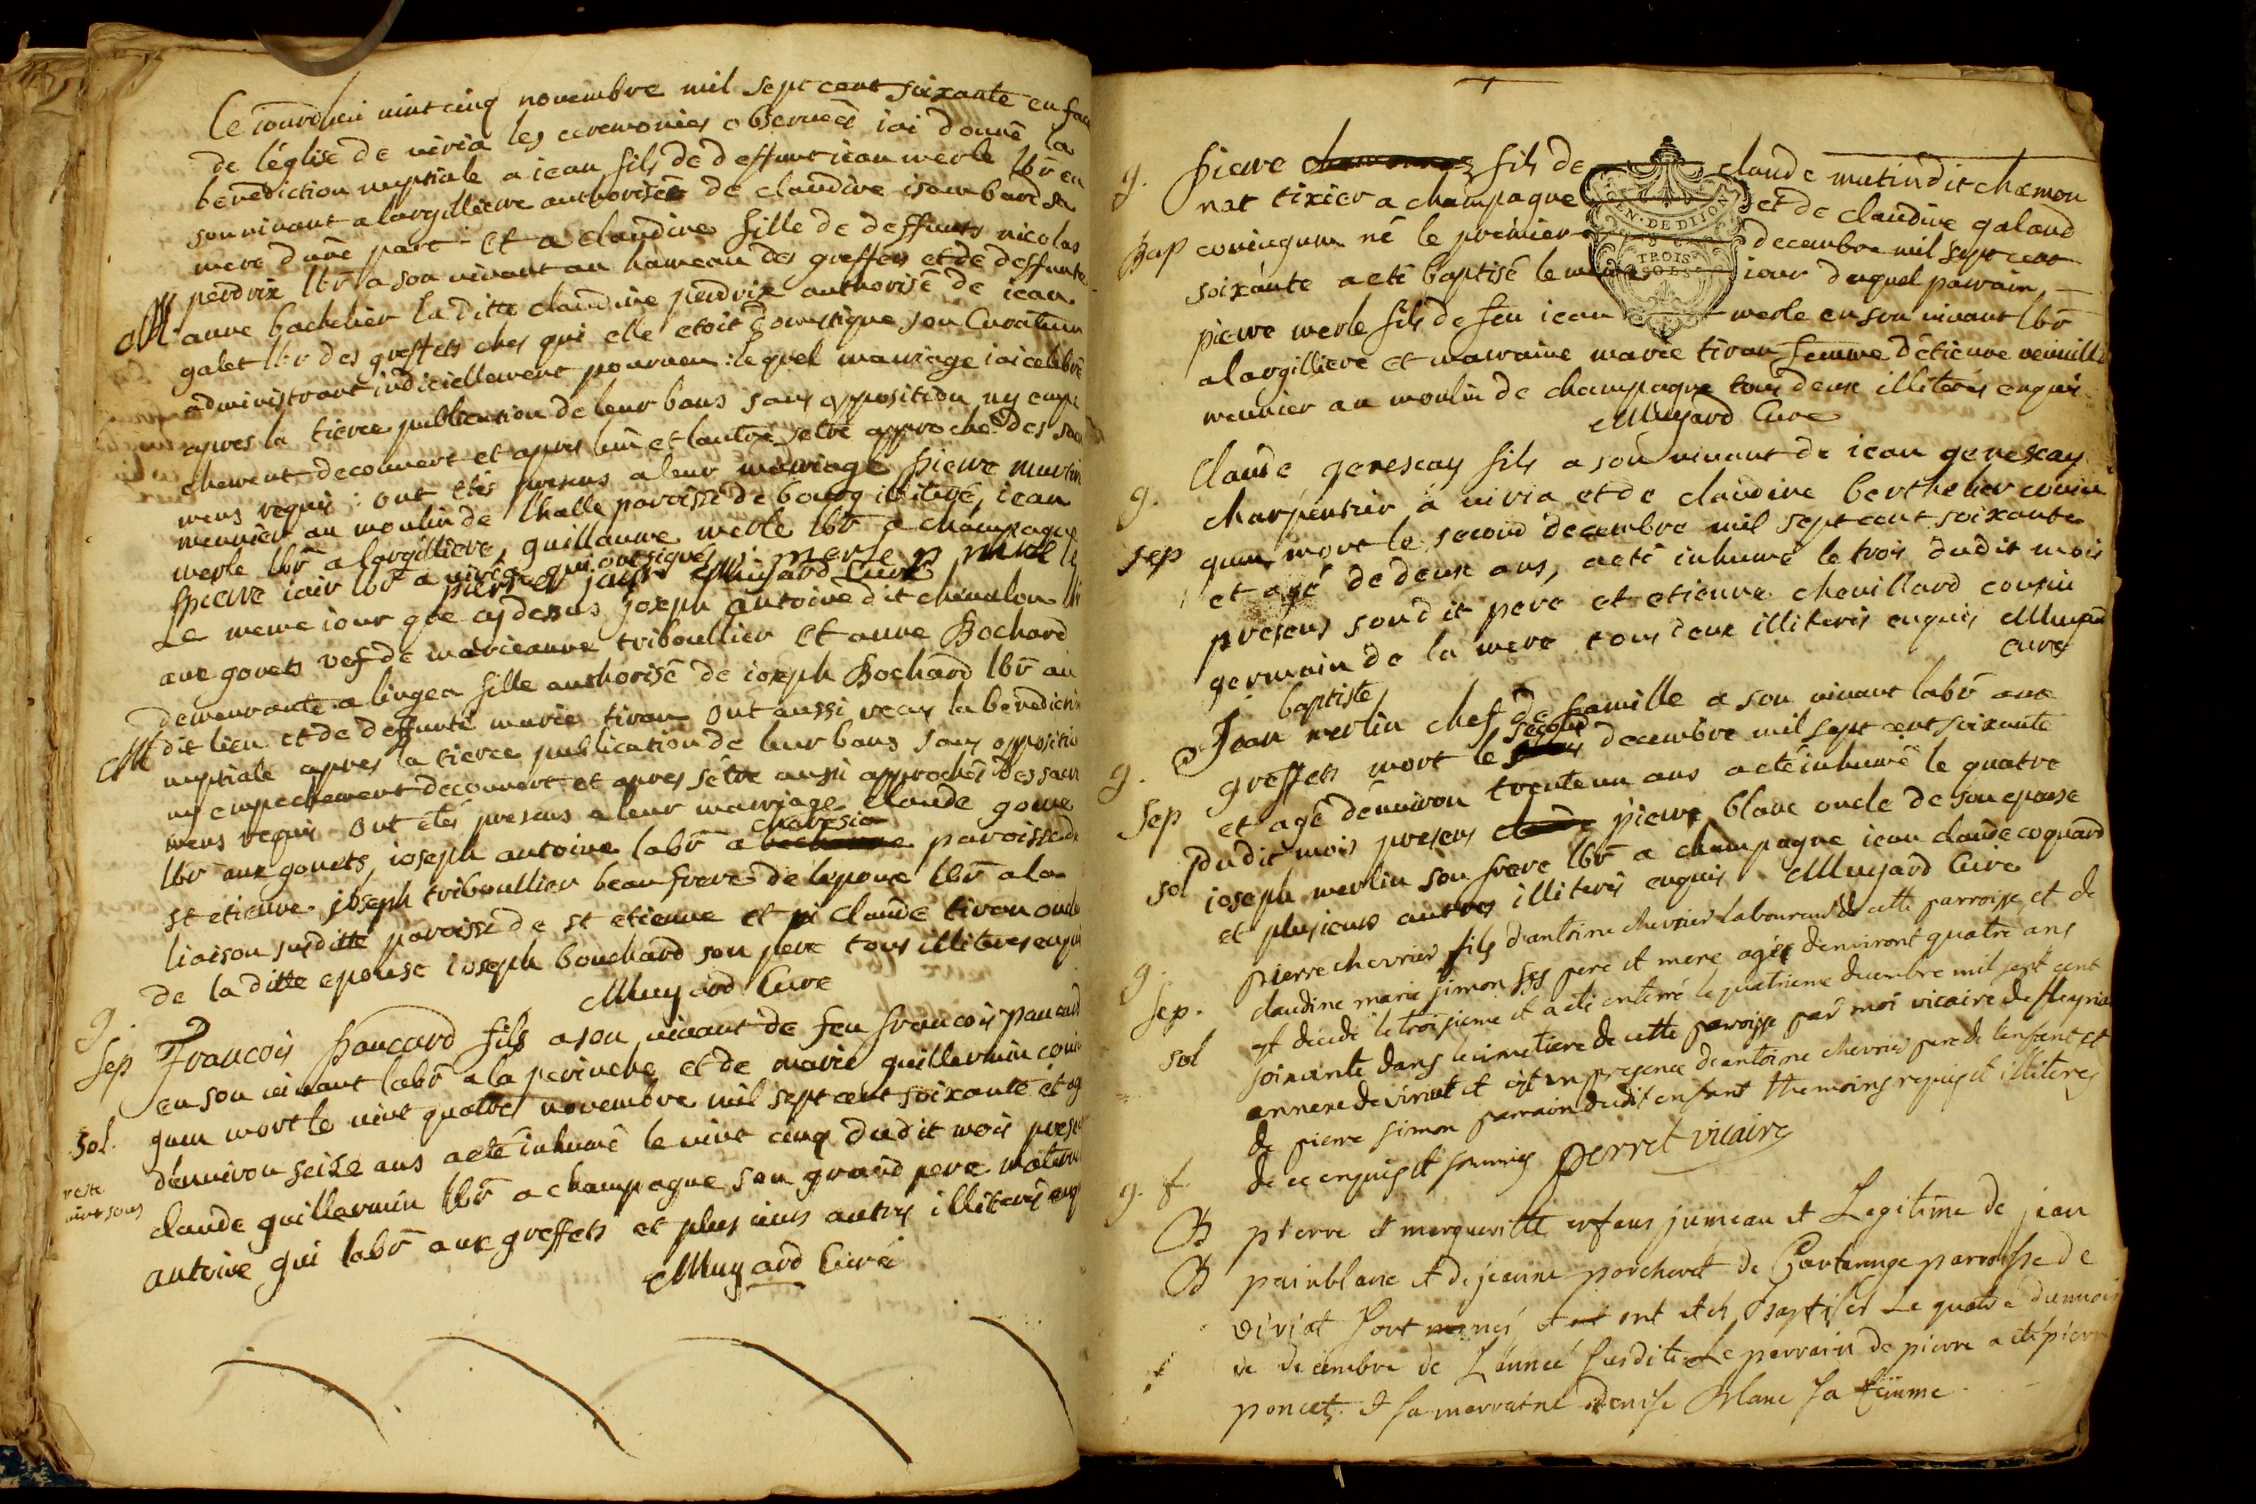 Ce iourdhui vint cinq novembre mil sept cent soixante en face
de l'église de viria les ceremonies observeés iai donné la
benediction nuptiale a iean fils de deffunt iean merle lbr en
son vivant a largilliere authorisée de claudine isambard sa
mere d'une part et a claudine fille de deffunts nicolas
perdrix lbr a son vivant au hameau des greffets et de deffunte
M anne bachelier laditte claudine perdrix authorisé de iean
galet lbr des greffets ches qui elle etoit domestique son Curateur
administrant iudiciellement pourveu : lequel mariage iai celebré
apres la tierce publication de leur bans sans opposition ny empe
chement decouvert et apres lun et lautre s'etre approché des sacre
mens requis : ont étés presens a leur mariage pierre martin
meunier au moulin de lhalle paroisse de bourg illiteré, iean
merle lbr a largilliere, guillaume merle lbr a champagne
pierre iair lbr a viria qui ont signés merle p merle
pierre jair Muyard Curé
Le meme iour que cy dessus joseph antoine dit chevalon lbr
aux gonets vef de marieanne triboullier et anne Bochard
demeurante a lingea fille authorisé de ioseph Bochard lbr au
M dit lieu et de deffunte marie tiran ont aussi recus la benedicti
nuptiale apres la tierce publication de leur bans sans oppositio
ny empechement decouvert et apres s'etre aussi approchés des sacre
mens requis ont étés presens a leur marriage claude gome
lbr aux gonets, ioseph antoine labr a charesia paroisse de
st etienne joseph triboullier beaufrere de l'epoux lbr a la
liaison susditte paroisse de st etienne et claude tiran oncle
de laditte epouse ioseph bouchard son pere tous illiteres enquis
Muyard Cure
g.
Sep Francois pancard fils a son vivant de feu francois pancard
en son vivant labr a la perinche et de marie guillermin coniu
gum mort le vint quatre novembre mil sept cent soixante et agé
Sol. d'environ seize ans a eté inhumé le vint cinq dudit mois presens
reste
vint sous
claude guillermin lbr a champagne son grand pere maternel
antoine gui labr aux greffets et plusieurs autres illiterés enq
Muyard Curé
g. pierre fils de claude mutin dit chamon
nat tixier a champagne et de claudine galand
Bap coniugum né le premier decembre mil sept cent
soixante a eté baptisé le meme iour duquel parrain
pierre merle fils de feu iean merle en son vivant lbr
a largilliere et marraine marie tiran femme d'etienne
meunier au moulin de champagne tous deux illiterés enquis
Muyard Cure
GEN·DE DIJON
TROIS
SOLS
g. Claude genescay fils a son vivant de iean genescay
charpentier a viria et de claudine berthelier coniu
sep gum mort le second decembre mil sept cent soixante
et agé de deux ans, a eté inhumé le trois dudit mois
presens sondit pere et etienne chevillard cousin
germain de la mere tous deux illiterés enquis Muyard
cure
baptiste
g. Jean merlin chef de famille a son vivant labr aux
greffets mort le second decembre mil sept cent soixante
Sep et agé d'environ trente un ans a eté inhumé le quatre
dudit mois presens pierre blanc oncle de son epouse
sol ioseph merlin son frere lbr a champagne iean claude coquard
et plusieurs autres illiterés enquis Muyard Cure
g. pierre chevrier fils d'antoine chevrier laboureur de cette parroisse et de
Sep. claudine marie simon ses pere et mere agée d'environt quatre ans
est décédé le troisieme et a eté enterré le quatrieme decembre mil sept cent
sol soixante dans le cimetiere de cette parroisse par moi vicaire de fleyria
annexe de viriat et cest en presence d'antoine chevrier pere de l'enfant et
de pierre simon parrain dudit enfant themoins requis et illiteres
de ce enquis et sommés perret vicaire
g. f.
B pierre et marguerite enfans jumeau et Legitime de jean
B painblanc et de jeanne porcheret de parroisse de
viriat sont nés et ont etés Baptisés Le quatre du mois
de decembre de L'année susdite Le parrain de pierre a eté pierre
poncet et sa marraine denise blanc sa femme